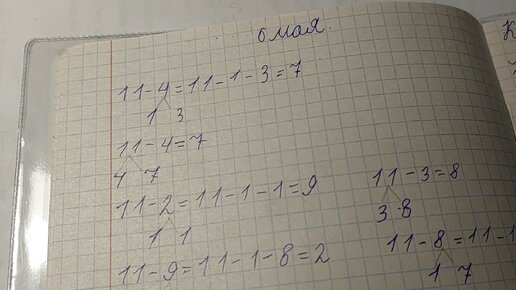 6 мая.
11-4=11-1-3=7
1 3
11-4=7
4 7
11-2=11-1-1=9
1 1
11-9=11-1-8=2
11-3=8
3 8
11-8=11-1
1 7